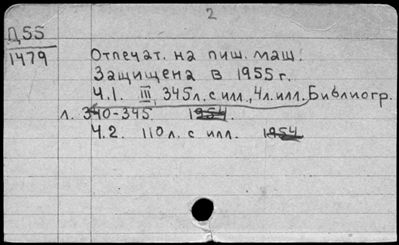 2
Д55
1479
Отпечат. на пиш. маш.
Защищена в 1955 г.
Ч.1. III, 345 л. с илл., 4 л. илл. Библиогр.
л. 340-345. 1954.
Ч.2. 110 л. с илл. 1954